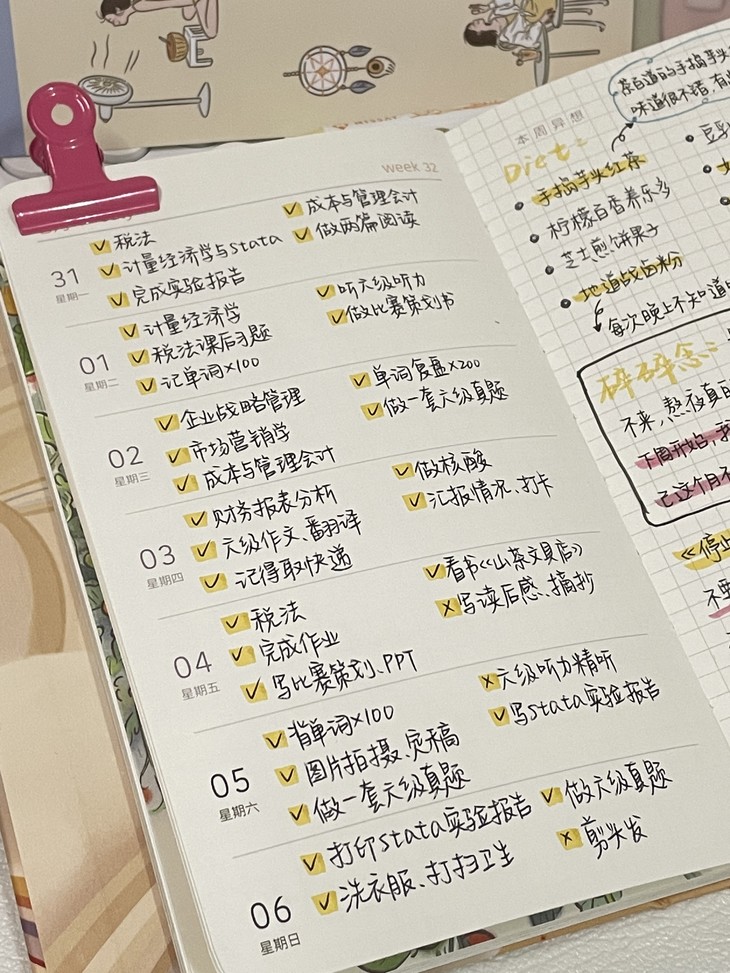 week 32
31
星期一
税法
计量经济学与stata
完成实验报告
成本与管理会计
做两篇阅读
01
星期二
计量经济学
税法课后习题
记单词×100
听六级听力
做比赛策划书
02
星期三
企业战略管理
市场营销学
成本与管理会计
单词复盘×200
做一套六级真题
03
星期四
财务报表分析
六级作文、翻译
记得取快递
做核酸
汇报情况、打卡
04
星期五
税法
完成作业
写比赛策划、PPT
看书《山茶文具店》
写读后感、摘抄
05
星期六
背单词×100
图片拍摄、定稿
做一套六级真题
六级听力精听
写stata实验报告
06
星期日
打印stata实验报告
洗衣服、打扫卫生
做六级真题
剪头发
茶百道的手捣芋头
味道很不错,有
本周异想
Diet:
手捣芋头红茶
柠檬百香养乐多
芝士煎饼果子
地道战卤粉
每次晚上不知道
豆乳
碎碎念:
不来,熬夜真的
下周开始,我
己这个月不
《停止
不要